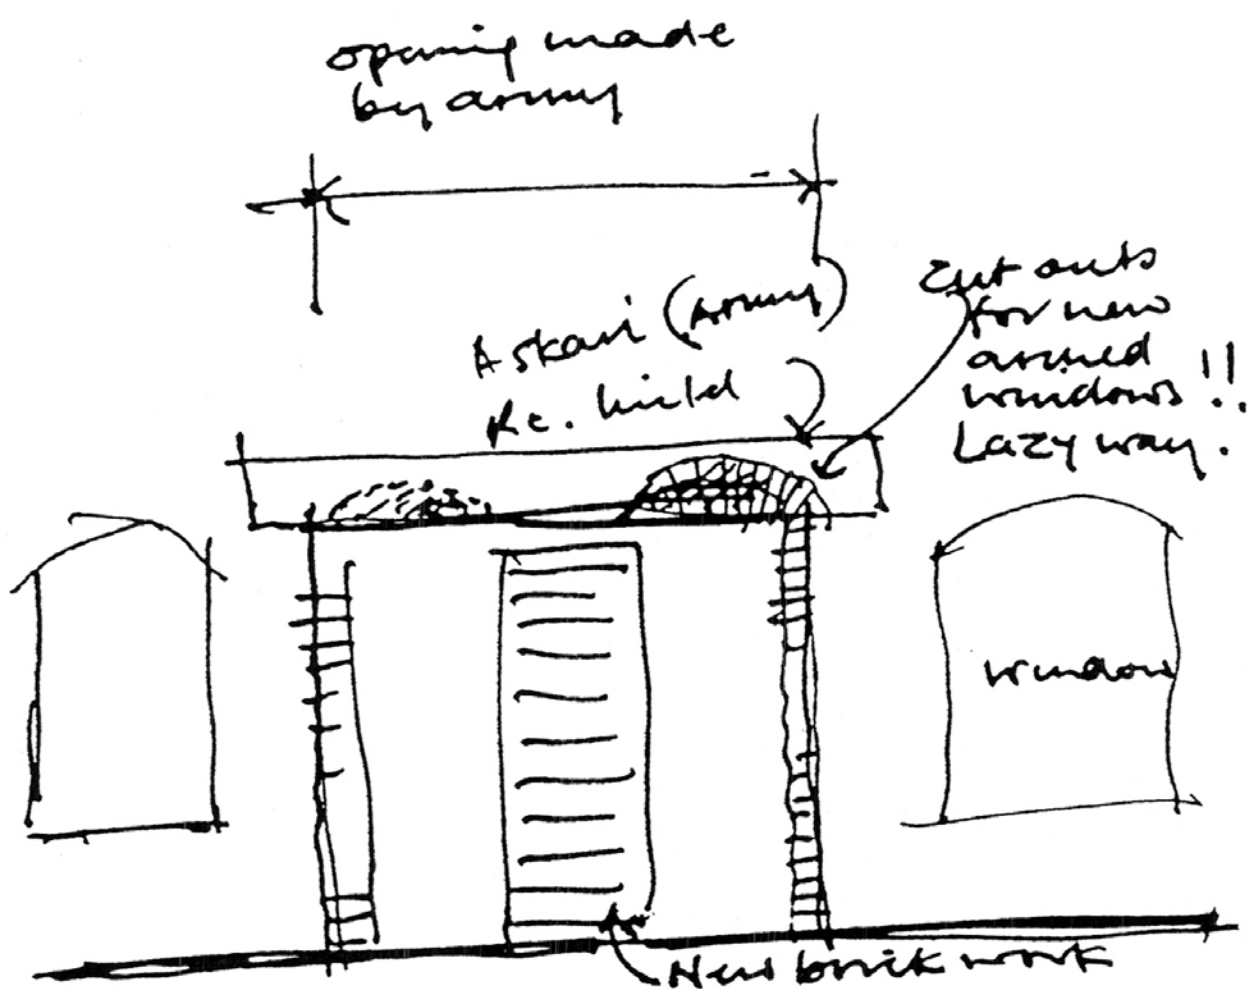 opening made
by army
Askari (Army)
Rc. lintel
Cut outs
for new
arched
windows !!
Lazy way.
window
New brick work